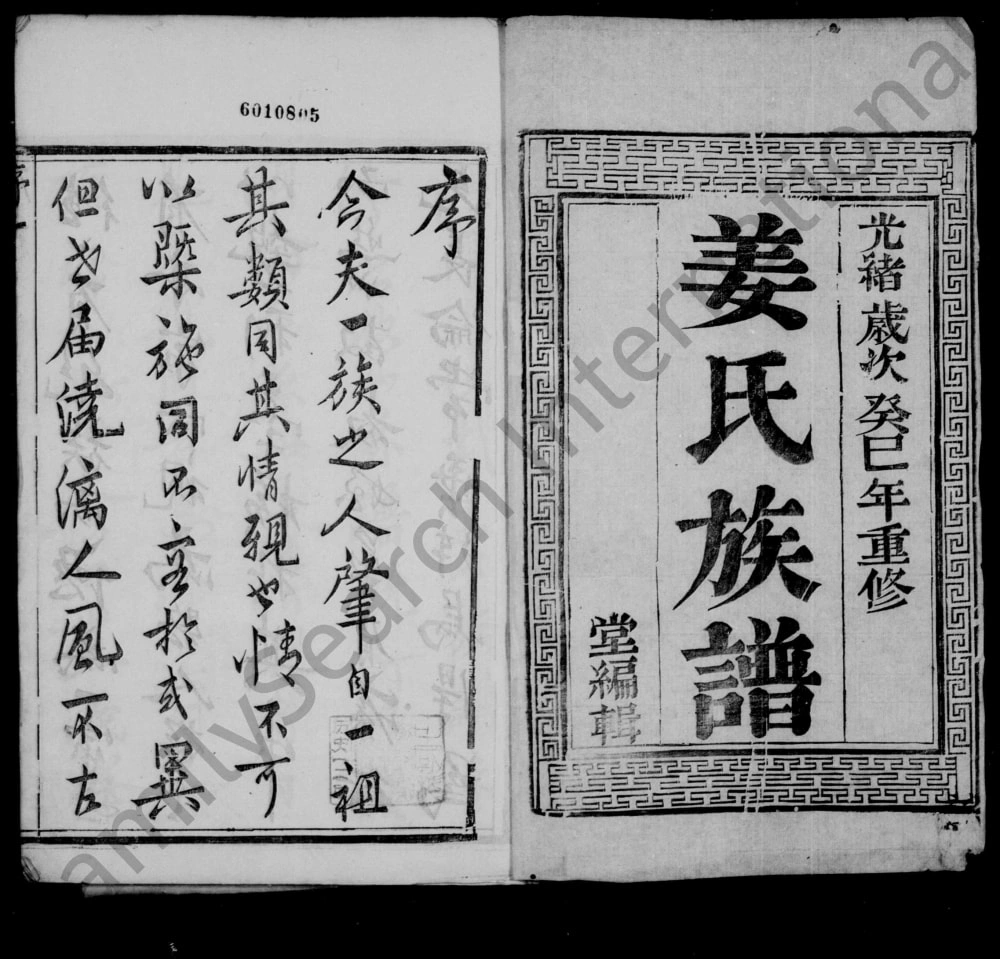 光緒歲次癸巳年重修
姜氏族譜
堂編輯
6010805
序
今夫一族之人肇自一祖
其類同其情親也情不可
以槩施同不宜於或異
但世届澆漓人風不古
FamilySearch International